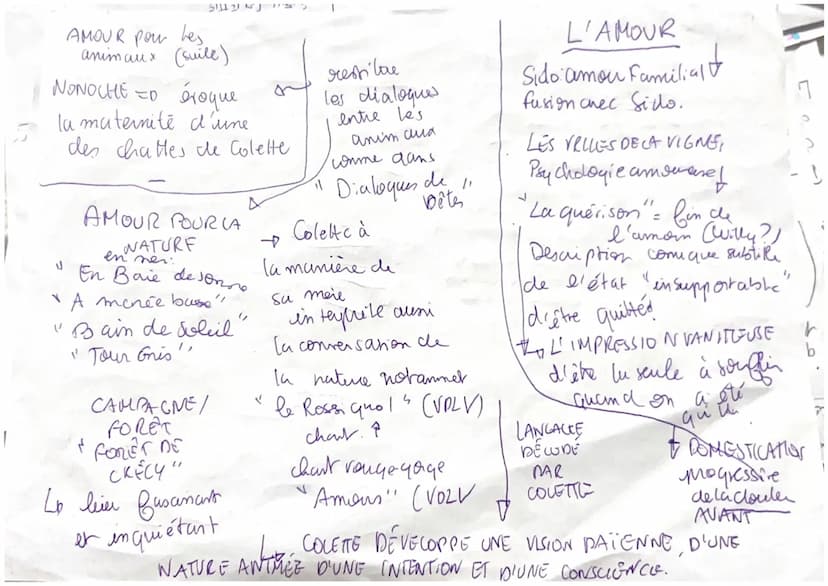 AMOUR pour les
animaux (suite)
NONOCHE => évoque
la maternité d'une
des chattes de Colette
restitue
les dialogues
entre les
animaux
comme dans
"Dialogues de
Bêtes"
AMOUR POUR LA
NATURE
en mer:
"En Baie de Somme
"A marée basse"
"Bain de Soleil"
"Tour Gris"
CAMPAGNE/
FORÊT
"FORÊT DE
CRÉCY"
lieu fascinant
et inquiétant
→ Colette à
la manière de
sa mère
interprète aussi
la conversation de
la nature notamment
"le Rossignol" (VDLV)
chant ↑
chant rouge-gorge
"Amours" (VDLV
L'AMOUR
Sido: amour Familial
fusion avec Sido.
LES VRILLES DE LA VIGNE,
Psychologie amoureuse
"La guérison" = fin de
l'amour (Willy?)
Description comique subtile
de l'état "insupportable"
d'être quitté.
↳ L'IMPRESSION VANITEUSE
d'être la seule à souffrir
quand on a été
LANGAGE
DÉCODÉ
PAR
COLETTE
DOMESTICATION
progressive
de la douleur
AVANT
COLETTE DÉVELOPPE UNE VISION PAÏENNE, D'UNE
NATURE ANIMÉE D'UNE INTENTION ET D'UNE CONSCIENCE.